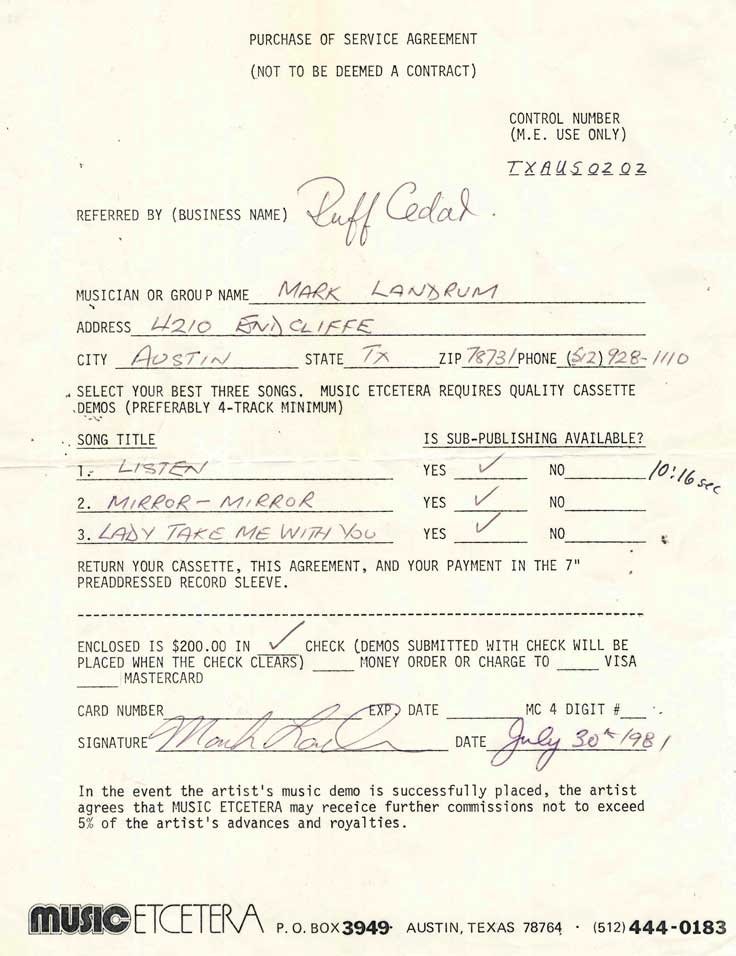 PURCHASE OF SERVICE AGREEMENT
(NOT TO BE DEEMED A CONTRACT)
CONTROL NUMBER
(M.E. USE ONLY)
TXAUS0202
REFERRED BY (BUSINESS NAME) Ruff Cedar.
MUSICIAN OR GROUP NAME MARK LANDRUM
ADDRESS 4210 ENDCLIFFE
CITY AUSTIN STATE TX ZIP 78731 PHONE (512) 928-1110
SELECT YOUR BEST THREE SONGS. MUSIC ETCETERA REQUIRES QUALITY CASSETTE
DEMOS (PREFERABLY 4-TRACK MINIMUM)
SONG TITLE IS SUB-PUBLISHING AVAILABLE?
1. LISTEN YES ✓ NO 10:16 sec
2. MIRROR-MIRROR YES ✓ NO
3. LADY TAKE ME WITH YOU YES ✓ NO
RETURN YOUR CASSETTE, THIS AGREEMENT, AND YOUR PAYMENT IN THE 7"
PREADDRESSED RECORD SLEEVE.
ENCLOSED IS $200.00 IN ✓ CHECK (DEMOS SUBMITTED WITH CHECK WILL BE
PLACED WHEN THE CHECK CLEARS) MONEY ORDER OR CHARGE TO VISA
MASTERCARD
CARD NUMBER EXP) DATE MC 4 DIGIT #
SIGNATURE Mark Landrum DATE July 30th 1981
In the event the artist's music demo is successfully placed, the artist
agrees that MUSIC ETCETERA may receice further commissions not to exceed
5% of the artist's advances and royalties.
MUSIC ETCETERA P.O. BOX 3949 · AUSTIN, TEXAS 78764 · (512) 444-0183